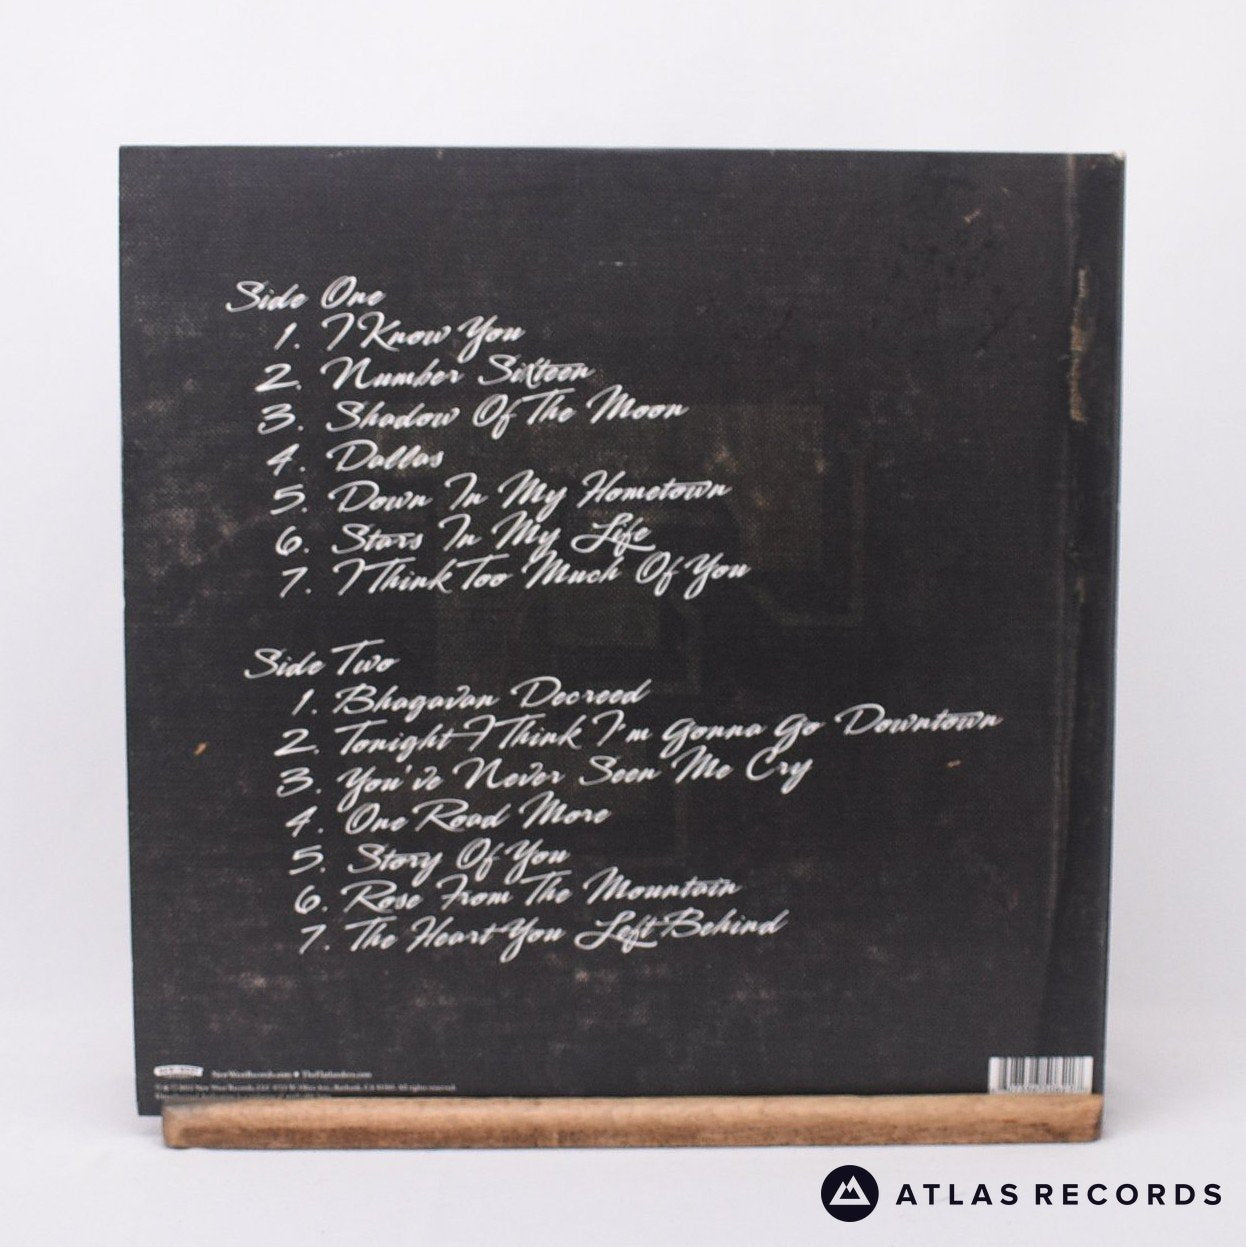 Side One
1. I Know You
2. Number Sixteen
3. Shadow Of The Moon
4. Dallas
5. Down In My Hometown
6. Stars In My Life
7. I Think Too Much Of You
Side Two
1. Bhagavan Decreed
2. Tonight I Think I'm Gonna Go Downtown
3. You've Never Seen Me Cry
4. One Road More
5. Story Of You
6. Rose From The Mountain
7. The Heart You Left Behind
NewWestRecords.com • TheFlatlanders.com
ATLAS RECORDS